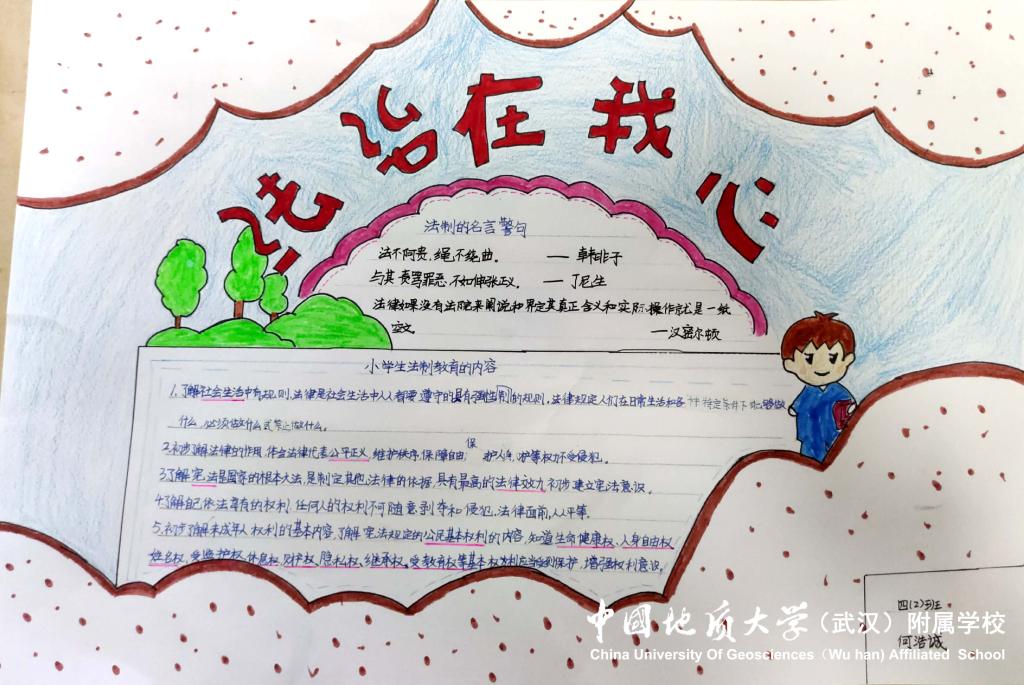 法治在我心
法制的名言警句
法不阿贵,绳不绕曲。 — 韩非子
与其责骂罪恶,不如伸张正义。 — 丁尼生
法律如果没有法院来阐说和界定其真正含义和实际操作就是一纸
空文。 — 汉密尔顿
小学生法制教育的内容
1.了解社会生活中有规则,法律是社会生活中人人都要遵守的具有强性制的规则。法律规定人们在日常生活和各种特定条件下能够做
什么,必须做什么或禁止做什么。
2.初步了解法律的作用,体会法律代表公平正义,维护秩序,保障自由,保护人身,等权力不受侵犯。
3.了解宪法是国家的根本大法,是制定其他法律的依据,具有最高的法律效力,初步建立宪法意识。
4.了解自己依法享有的权利,任何人的权利不可随意剥夺和侵犯,法律面前,人人平等。
5.初步了解未成年人权利的基本内容,了解宪法规定的公民基本权利的内容,知道生命健康权、人身自由权、
姓名权、受监护权、休息权、财产权、隐私权、继承权、受教育权等基本权利应当受到保护,增强权利意识。
四(2)班
何浩诚
中国地质大学(武汉)附属学校
China University Of Geosciences (Wu han) Affiliated School